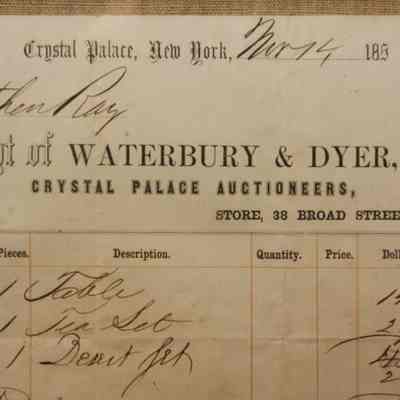 Crystal Palace, New York, Nov 14 185
then Ray
gt of WATERBURY & DYER,
CRYSTAL PALACE AUCTIONEERS,
STORE, 38 BROAD STREE
Pieces. Description. Quantity. Price. Doll
1 Table 1
1 Tea Set 2
1 Set
2